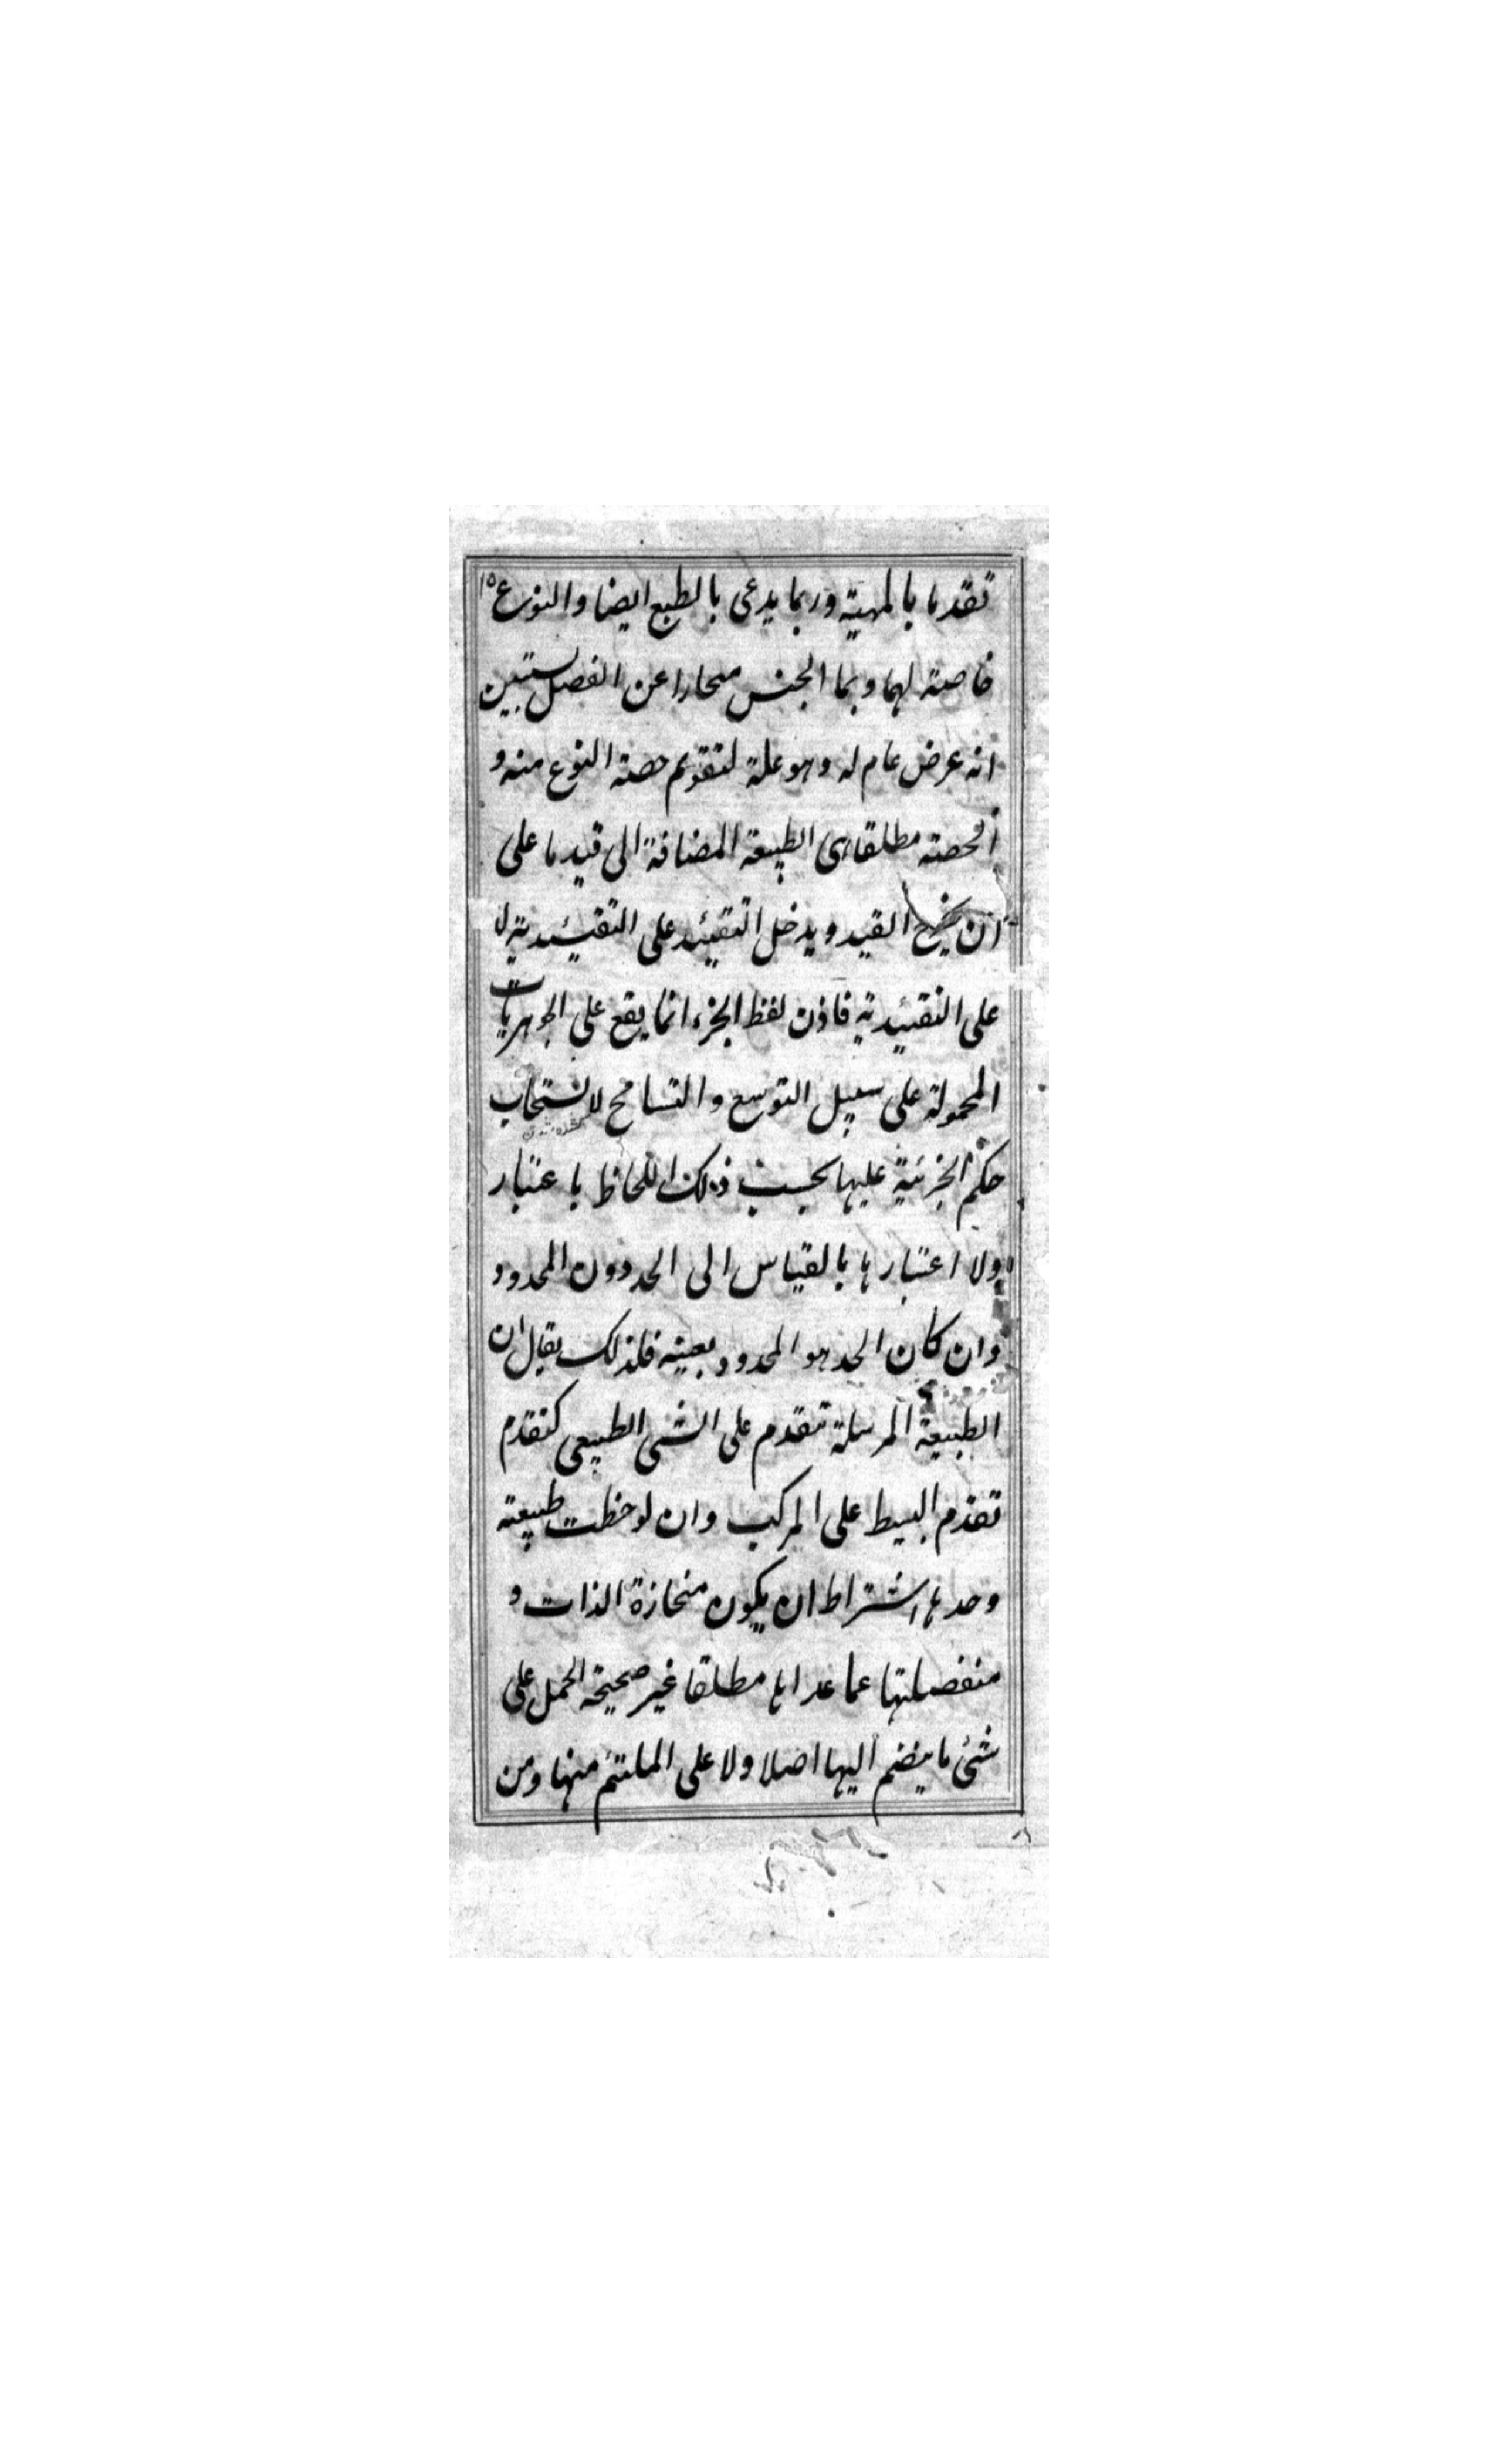 تقدما بالمهية وربما يدعى بالطبع ايضا والنوع ١٥
خاصة لهما وبما الجنس منحازا عن الفصل ستبين
انه عرض عام له وهو علة لتقويم حصة النوع منه و
الحصة مطلقا هى الطبيعة المضافة الى قيد ما على
ان يخرج القيد ويدخل التقييد على التقييدية لا
على التقييدية فاذن لفظ الجزء انما يقع على الجوهريات
المحمولة على سبيل التوسع والتسامح لانسحاب
حكم الجزئية عليها بحسب ذلك اللحاظ باعتبار
ولا اعتبارها بالقياس الى الحد دون المحدود
وان كان الحد هو المحدود بعينه فلذلك يقال ان
الطبيعة المرسلة تتقدم على الشى الطبيعى كتقدم
تقدم البسيط على المركب وان لوحظت طبيعة
وحدها اشتراط ان يكون منحازة الذات و
منفصلتها عما عداها مطلقا غير صحيحة الحمل على
شئ ما ينضم اليها اصلا ولا على الملتئم منها ومن